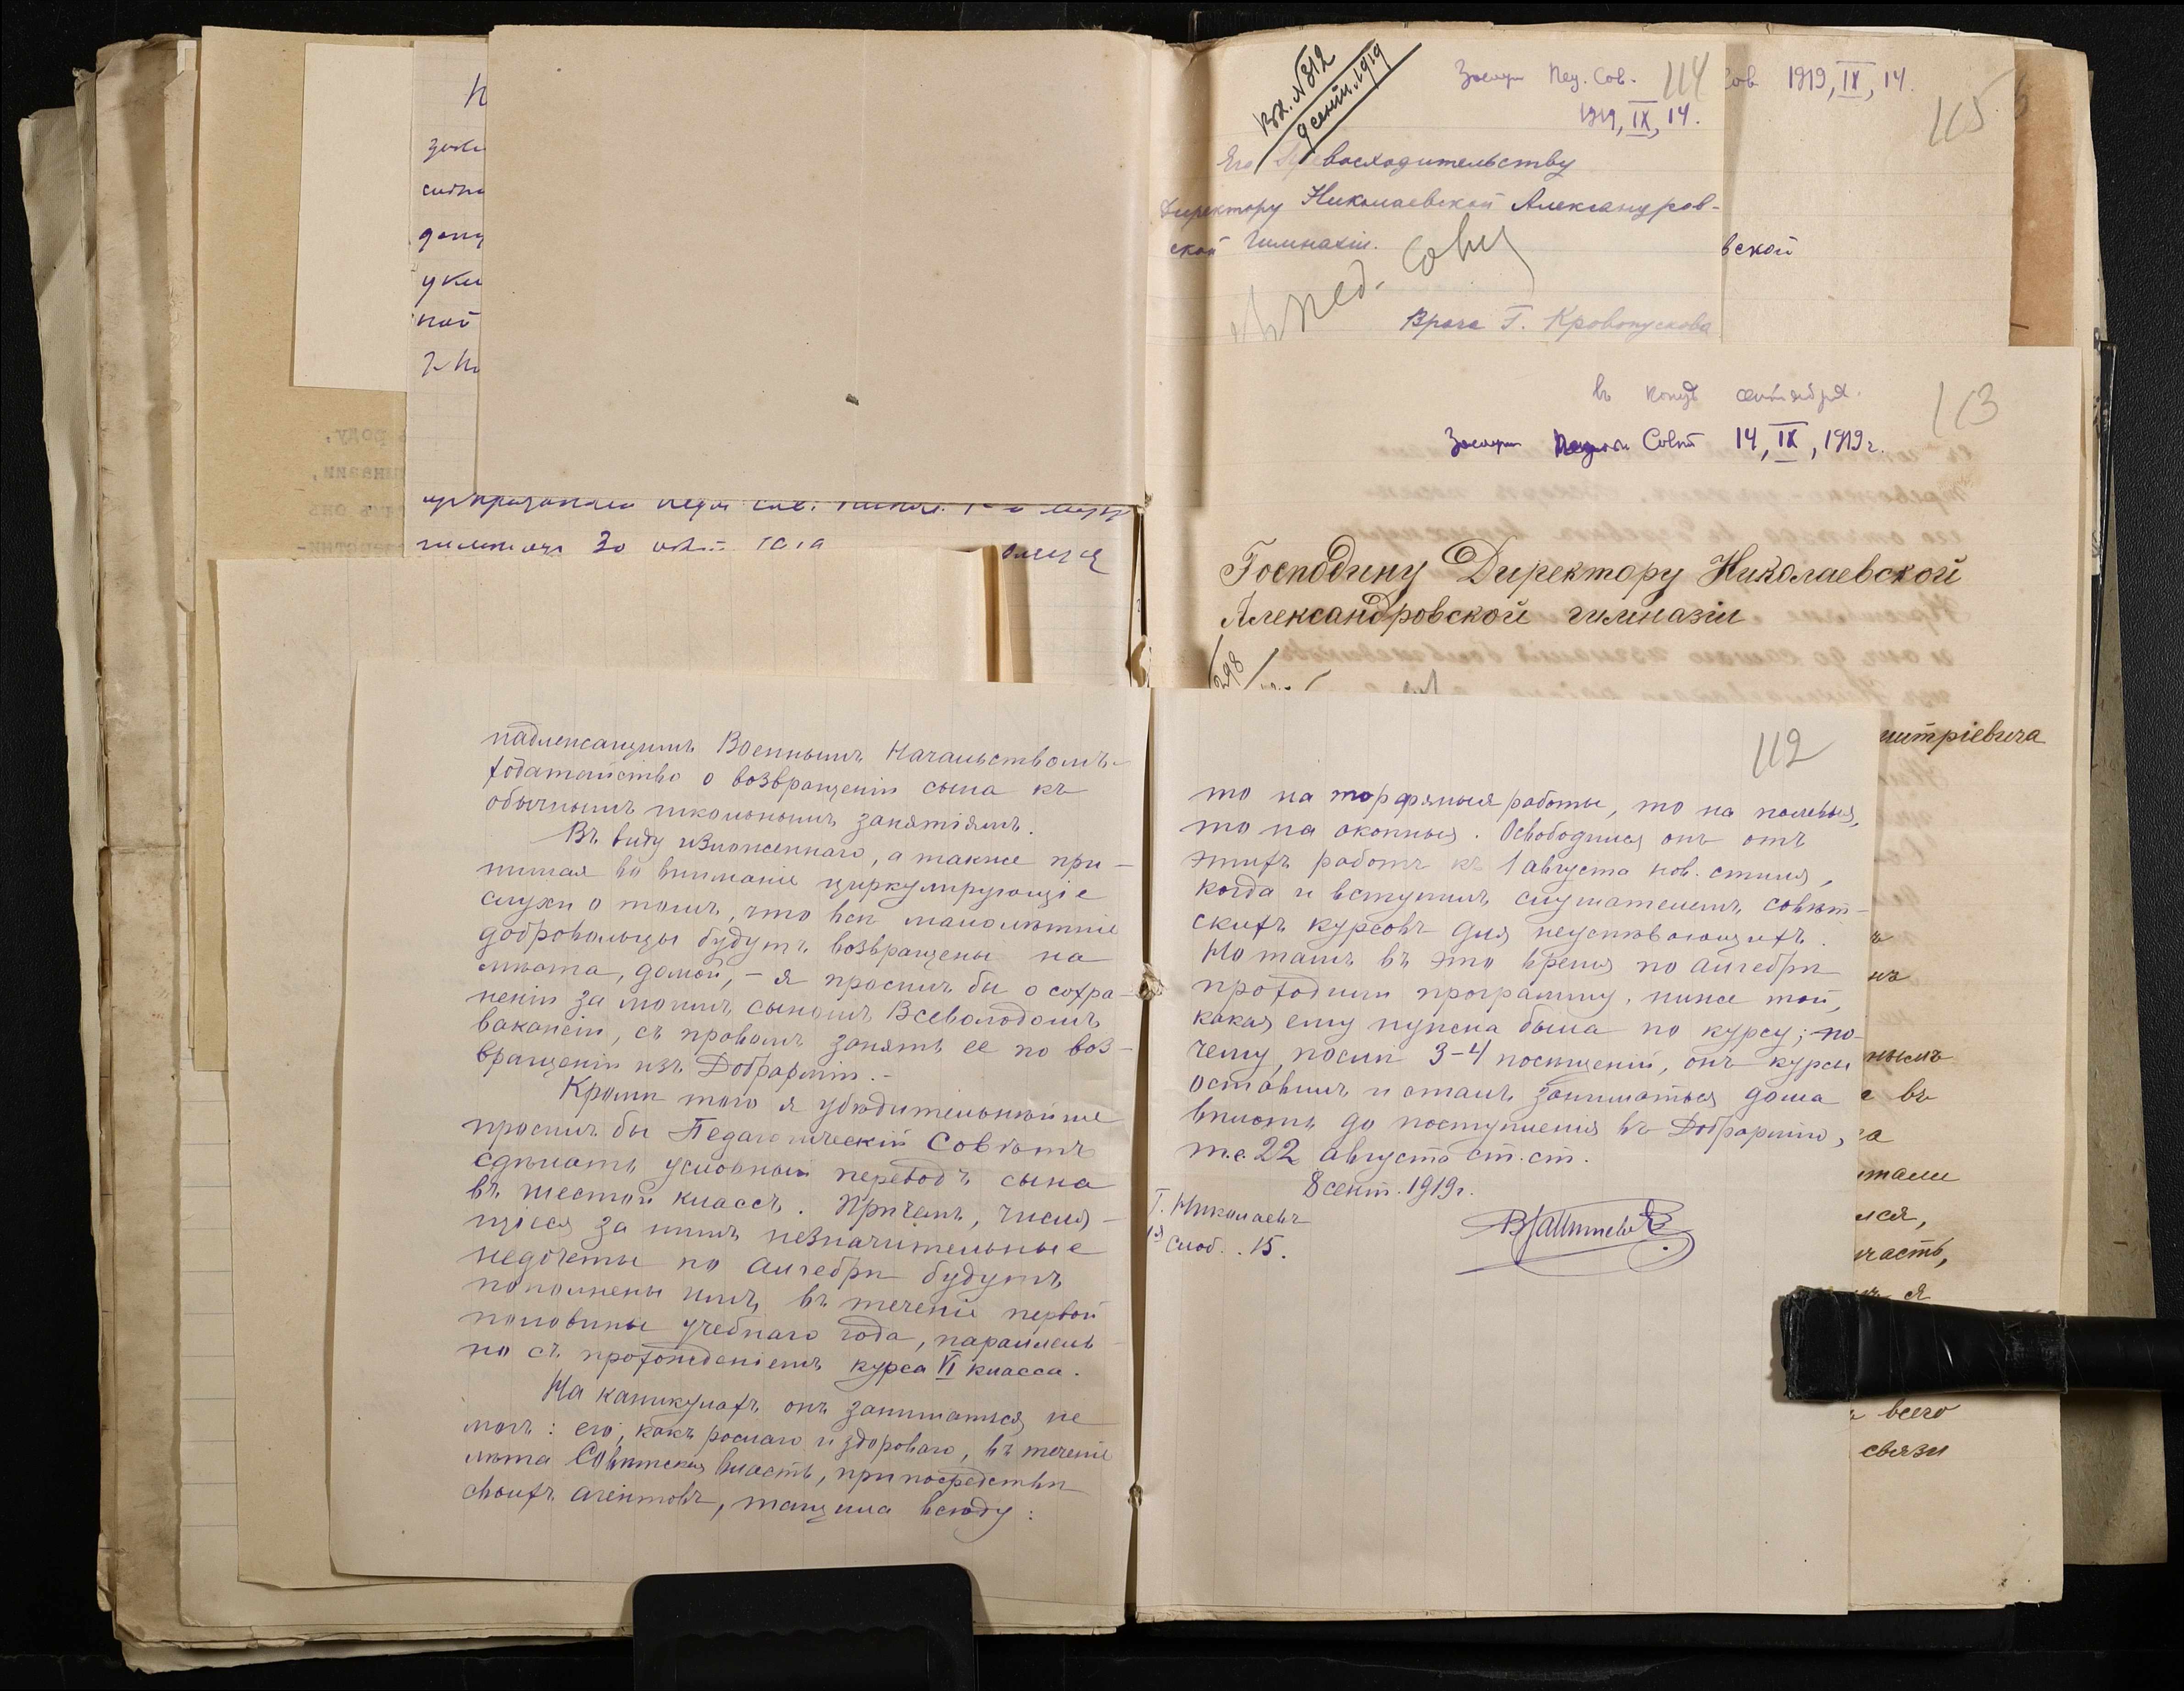 надлежащимъ Военнымъ Начальствомъ-
ходатайство о возвращеніи сына къ
обычнымъ школьнымъ занятіямъ.
Въ виду изложеннаго, а также при-
нимая во вниманіе циркулирующіе
слухи о томъ, что всѣ малолѣтніе
добровольцы будутъ возвращены на
мѣста, домой, - я просилъ бы о сохра-
неніи за моимъ сыномъ Всеволодомъ
вакансіи, съ правомъ занять ее по воз-
вращеніи изъ Добрарміи.-
Кромѣ того я убѣдительнѣйше
просилъ бы Педагогическій Совѣтъ
сдѣлать условный переводъ сына
въ шестой классъ. Причемъ, числя-
щіеся за нимъ незначительные
недочеты по алгебрѣ будутъ
пополнены имъ въ теченіе первой
половины учебнаго года, параллель-
но съ прохожденіемъ курса VI класса.
На каникулахъ онъ заниматься не
могъ: его, какъ рослаго и здороваго, въ теченіе
лѣта Совѣтская власть, при посредствѣ
своихъ агентовъ, тащила всюду:
Вх. №312
9 сент. 1919
114
1919, IX, 14.
Его Превосходительству
Директору Николаевской Александров-
ской Гимназіи.
пед. совѣт
Врача Г. Кровопускова
Сов 1919, IX, 14.
115
вской
въ концѣ сентября.
113
Совѣт 14, IX, 1919 г.
Господину Директору Николаевской
Александровской гимназіи
298
112
то на торфяныя работы, то на полевыя,
то на окопныя. Освободился онъ отъ
этихъ работъ къ 1 августа нов. стиля,
когда и вступилъ слушателемъ совѣт-
скихъ курсовъ для неуспѣвающихъ.
Но тамъ въ это время по алгебрѣ
проходили программу, ниже той,
какая ему нужна была по курсу; по-
чему, послѣ 3-4 посѣщеній, онъ курсы
оставилъ и сталъ заниматься дома
вплоть до поступленія въ Добрармію,
т.е. 22 августа ст. ст.
8 сент. 1919 г.
Г. Николаевъ
1я Слоб. . 15.
митріевича
нымъ
въ
тали
лся,
часть,
я
всего
связи